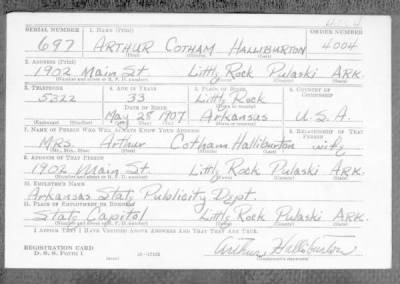 4004
SERIAL NUMBER 1. NAME (Print) ORDER NUMBER
697 ARTHUR COTHAM HALLIBURTON 4004
(First) (Middle) (Last)
2. ADDRESS (Print)
1902 Main St Little Rock Pulaski ARK.
(Number and street or R. F. D. number) (Town) (County) (State)
3. TELEPHONE 4. AGE IN YEARS 5. PLACE OF BIRTH 6. COUNTRY OF CITIZENSHIP
5322 33 Little Rock
DATE OF BIRTH (Town or county)
May 28 1907 Arkansas U.S.A.
(Exchange) (Number) (Mo.) (Day) (Yr.) (State or country)
7. NAME OF PERSON WHO WILL ALWAYS KNOW YOUR ADDRESS 8. RELATIONSHIP OF THAT PERSON
Mrs. Arthur Cotham Halliburton wife
(Mr., Mrs., Miss) (First) (Middle) (Last)
9. ADDRESS OF THAT PERSON
1902 Main St. Little Rock Pulaski ARK.
(Number and street or R. F. D. number) (Town) (County) (State)
10. EMPLOYER'S NAME
Arkansas State Publicity Dept.
11. PLACE OF EMPLOYMENT OR BUSINESS
State Capitol Little Rock Pulaski ARK.
(Number and street or R. F. D. number) (Town) (County) (State)
I AFFIRM THAT I HAVE VERIFIED ABOVE ANSWERS AND THAT THEY ARE TRUE.
REGISTRATION CARD
D. S. S. FORM 1 Arthur Halliburton
(Registrant's signature)